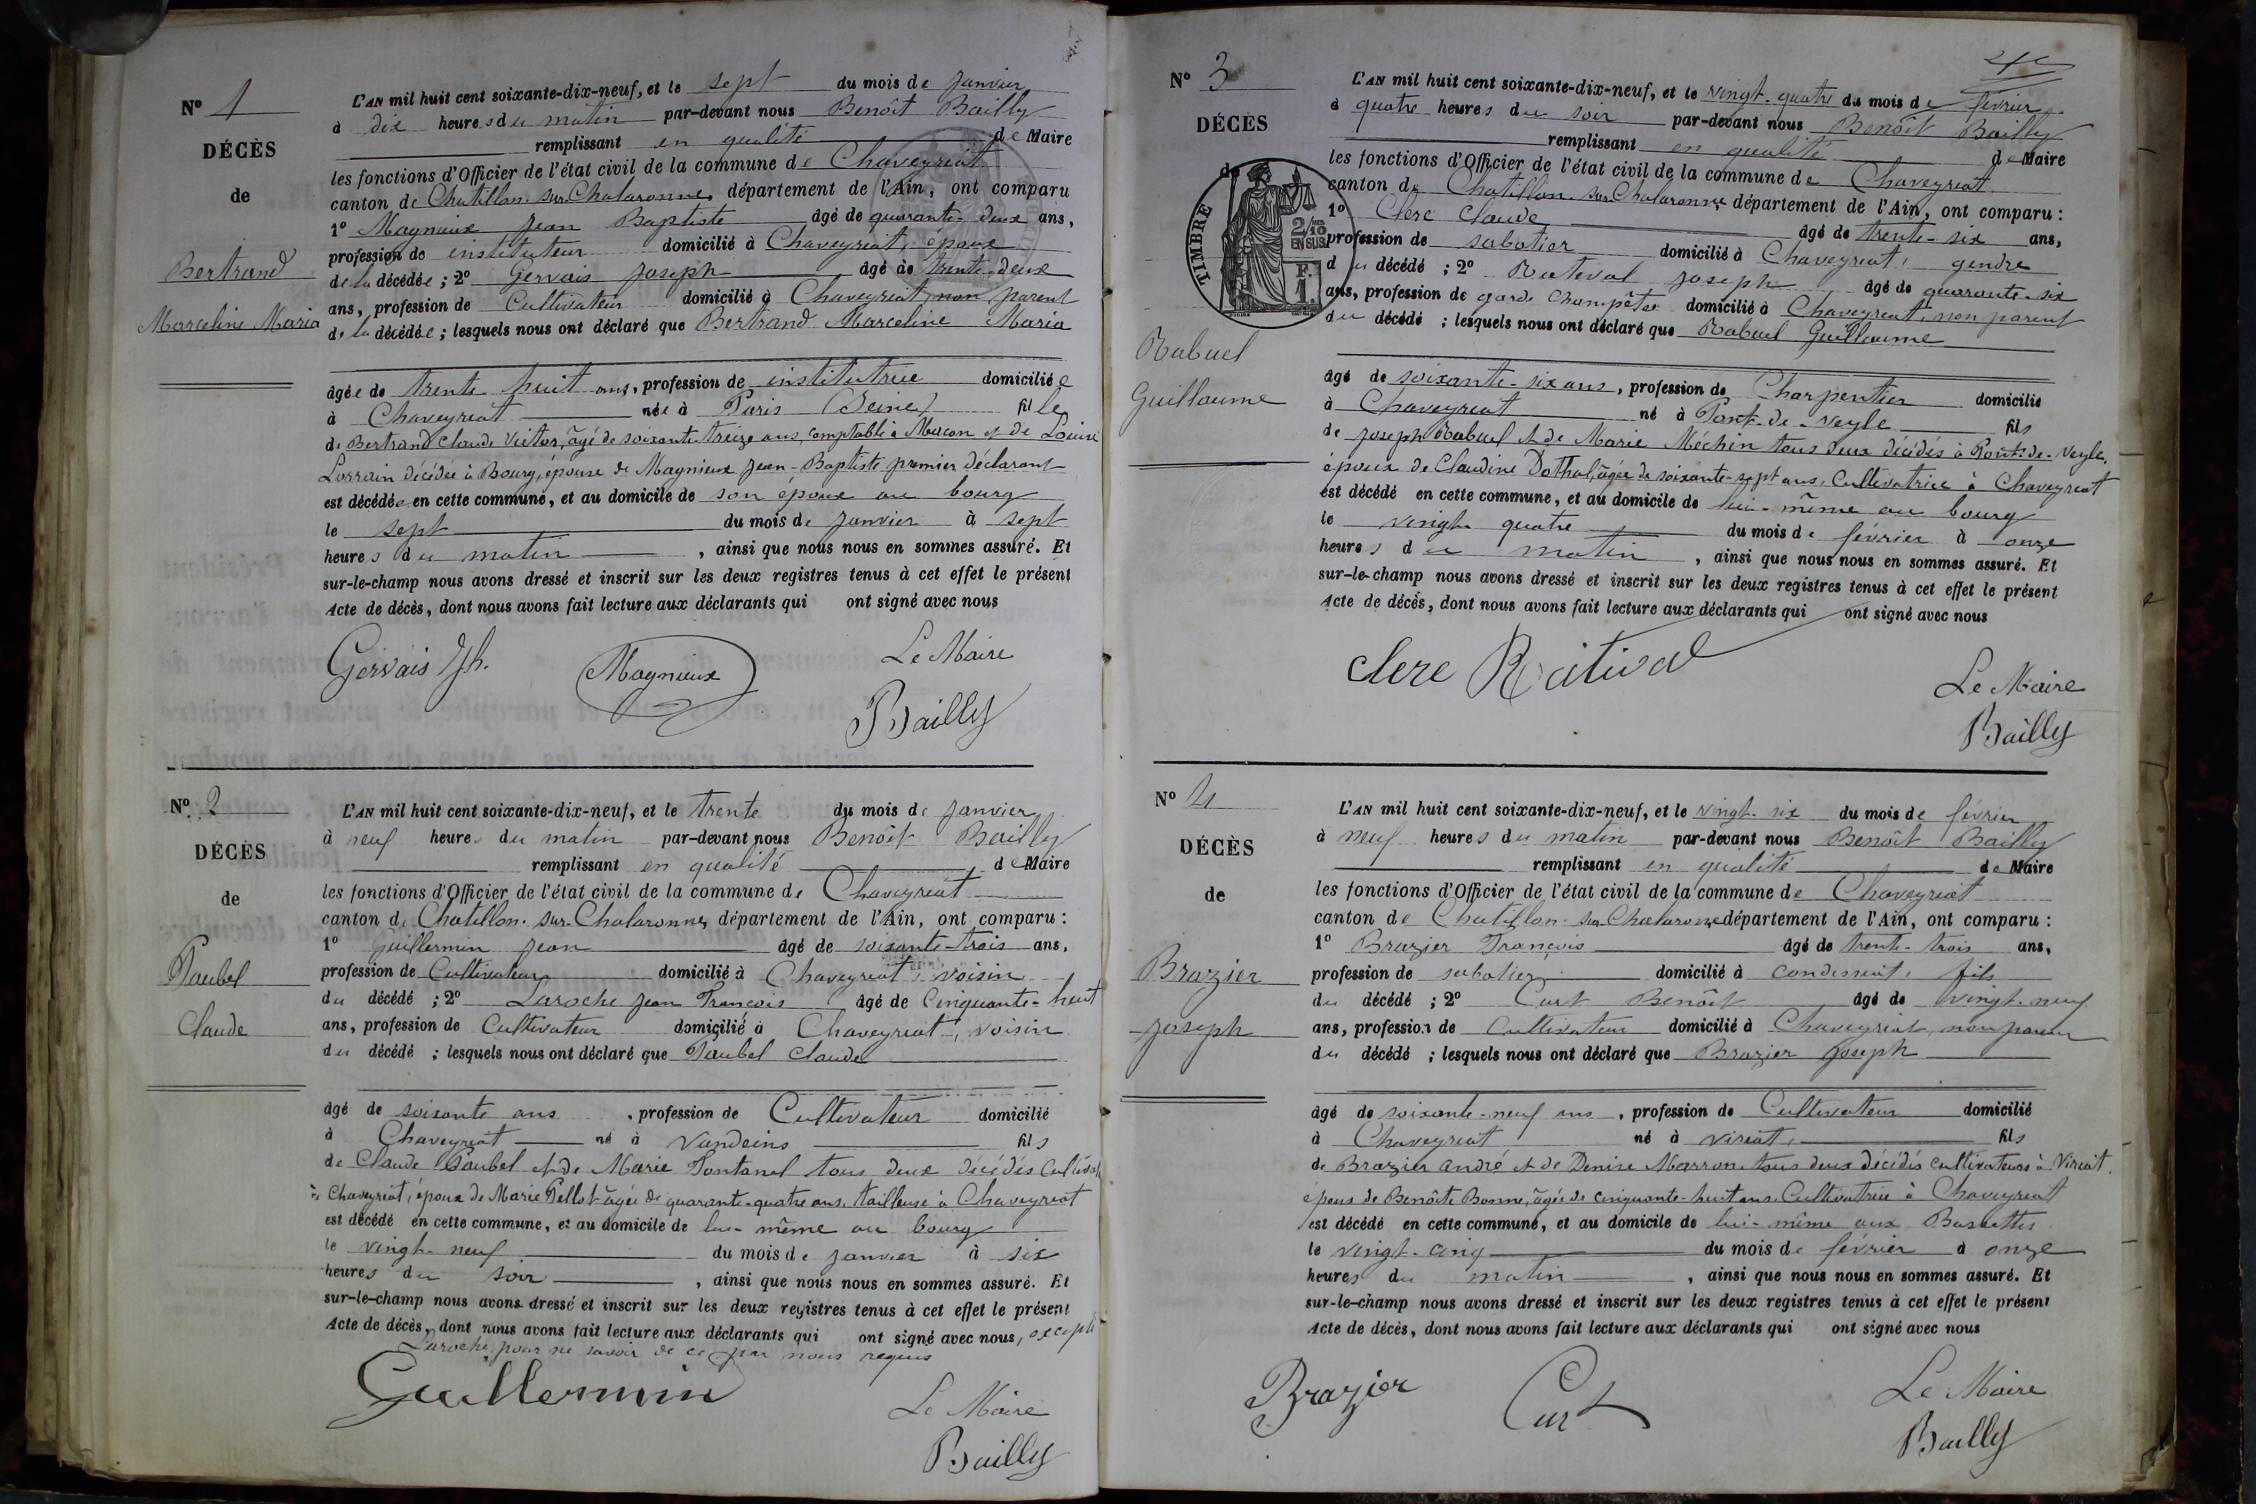 N° 1
DÉCÈS
de
Bertrand
Marceline Maria
L'AN mil huit cent soixante-dix-neuf, et le sept du mois de janvier
à dix heures du matin par-devant nous Benoît Bailly
remplissant en qualité de Maire
les fonctions d'Officier de l'état civil de la commune de Chaveyriat
canton de Chatillon-sur-Chalaronne, département de l'Ain, ont comparu
1° Magnieux Jean Baptiste âgé de quarante-deux ans,
profession de instituteur domicilié à Chaveyriat, époux
de la décédée ; 2° Gervais Joseph âgé de trente-deux
ans, profession de Cultivateur domicilié à Chaveyriat, non parent
de la décédée ; lesquels nous ont déclaré que Bertrand Marceline Maria
âgée de trente huit ans, profession de institutrice domiciliée
à Chaveyriat née à Paris (Seine) fille
de Bertrand Claude Victor, âgé de soixante-treize ans, comptable à Macon et de Louise
Lorrain décédée à Bourg, épouse de Magnieux Jean-Baptiste premier déclarant
est décédée en cette commune, et au domicile de son époux au bourg
le sept du mois de janvier à sept
heures du matin, ainsi que nous nous en sommes assuré. Et
sur-le-champ nous avons dressé et inscrit sur les deux registres tenus à cet effet le présent
Acte de décès, dont nous avons fait lecture aux déclarants qui ont signé avec nous
Gervais Jph. Magnieux Le Maire
Bailly
N° 2
DÉCÈS
de
Paubel
Claude
L'AN mil huit cent soixante-dix-neuf, et le trente du mois de janvier
à neuf heures du matin par-devant nous Benoît Bailly
remplissant en qualité de Maire
les fonctions d'Officier de l'état civil de la commune de Chaveyriat
canton de Chatillon-sur-Chalaronne, département de l'Ain, ont comparu :
1° Guillermin Jean âgé de soixante-trois ans,
profession de Cultivateur domicilié à Chaveyriat, voisin
du décédé ; 2° Laroche Jean François âgé de Cinquante-huit
ans, profession de Cultivateur domicilié à Chaveyriat, voisin
du décédé ; lesquels nous ont déclaré que Paubel Claude
âgé de soixante ans, profession de Cultivateur domicilié
à Chaveyriat né à Vandeins fils
de Claude Paubel et de Marie Fontanel tous deux décédés
à Chaveyriat, époux de Marie Pellot âgée de quarante-quatre ans, tailleuse à Chaveyriat
est décédé en cette commune, et au domicile de lui-même au bourg
le vingt-neuf du mois de janvier à six
heures du soir, ainsi que nous nous en sommes assuré. Et
sur-le-champ nous avons dressé et inscrit sur les deux registres tenus à cet effet le présent
Acte de décès, dont nous avons fait lecture aux déclarants qui ont signé avec nous, excepté
Laroche pour ne savoir de ce par nous requis
Guillermin Le Maire
Bailly
4e
N° 3
DÉCÈS
de
TIMBRE
2/10 EN SUS
F. 1
Rabuel
Guillaume
L'AN mil huit cent soixante-dix-neuf, et le vingt-quatre du mois de février
à quatre heures du soir par-devant nous Benoît Bailly
remplissant en qualité de Maire
les fonctions d'Officier de l'état civil de la commune de Chaveyriat
canton de Chatillon-sur-Chalaronne département de l'Ain, ont comparu :
1° Clere Claude âgé de trente-six ans,
profession de sabotier domicilié à Chaveyriat, gendre
du décédé ; 2° Rateval Joseph âgé de quarante-six
ans, profession de garde champêtre domicilié à Chaveyriat, non parent
du décédé ; lesquels nous ont déclaré que Rabuel Guillaume
âgé de soixante-six ans, profession de Charpentier domicilié
à Chaveyriat né à Pont-de-Veyle fils
de Joseph Rabuel et de Marie Méchin tous deux décédés à Pont-de-Veyle,
époux de Claudine Dothal, âgée de soixante-sept ans, Cultivatrice à Chaveyriat
est décédé en cette commune, et au domicile de lui-même au bourg
le vingt quatre du mois de février à onze
heures du matin, ainsi que nous nous en sommes assuré. Et
sur-le-champ nous avons dressé et inscrit sur les deux registres tenus à cet effet le présent
Acte de décès, dont nous avons fait lecture aux déclarants qui ont signé avec nous
Clere Ratival
Le Maire
Bailly
N° 4
DÉCÈS
de
Brazier
Joseph
L'AN mil huit cent soixante-dix-neuf, et le vingt-six du mois de février
à neuf heures du matin par-devant nous Benoît Bailly
remplissant en qualité de Maire
les fonctions d'Officier de l'état civil de la commune de Chaveyriat
canton de Chatillon-sur-Chalaronne département de l'Ain, ont comparu :
1° Brazier François âgé de trente-trois ans,
profession de sabotier domicilié à Condeissiat, fils
du décédé ; 2° Curt Benoît âgé de vingt-neuf
ans, profession de Cultivateur domicilié à Chaveyriat, non parent
du décédé ; lesquels nous ont déclaré que Brazier Joseph
âgé de soixante-neuf ans, profession de Cultivateur domicilié
à Chaveyriat né à Viriat, fils
de Brazier André et de Denise Marron tous deux décédés cultivateurs à Viriat,
époux de Benoîte Bonne, âgée de cinquante-huit ans Cultivatrice à Chaveyriat
est décédé en cette commune, et au domicile de lui-même aux
le vingt-cinq du mois de février à onze
heures du matin, ainsi que nous nous en sommes assuré. Et
sur-le-champ nous avons dressé et inscrit sur les deux registres tenus à cet effet le présent
Acte de décès, dont nous avons fait lecture aux déclarants qui ont signé avec nous
Brazier Curt Le Maire
Bailly